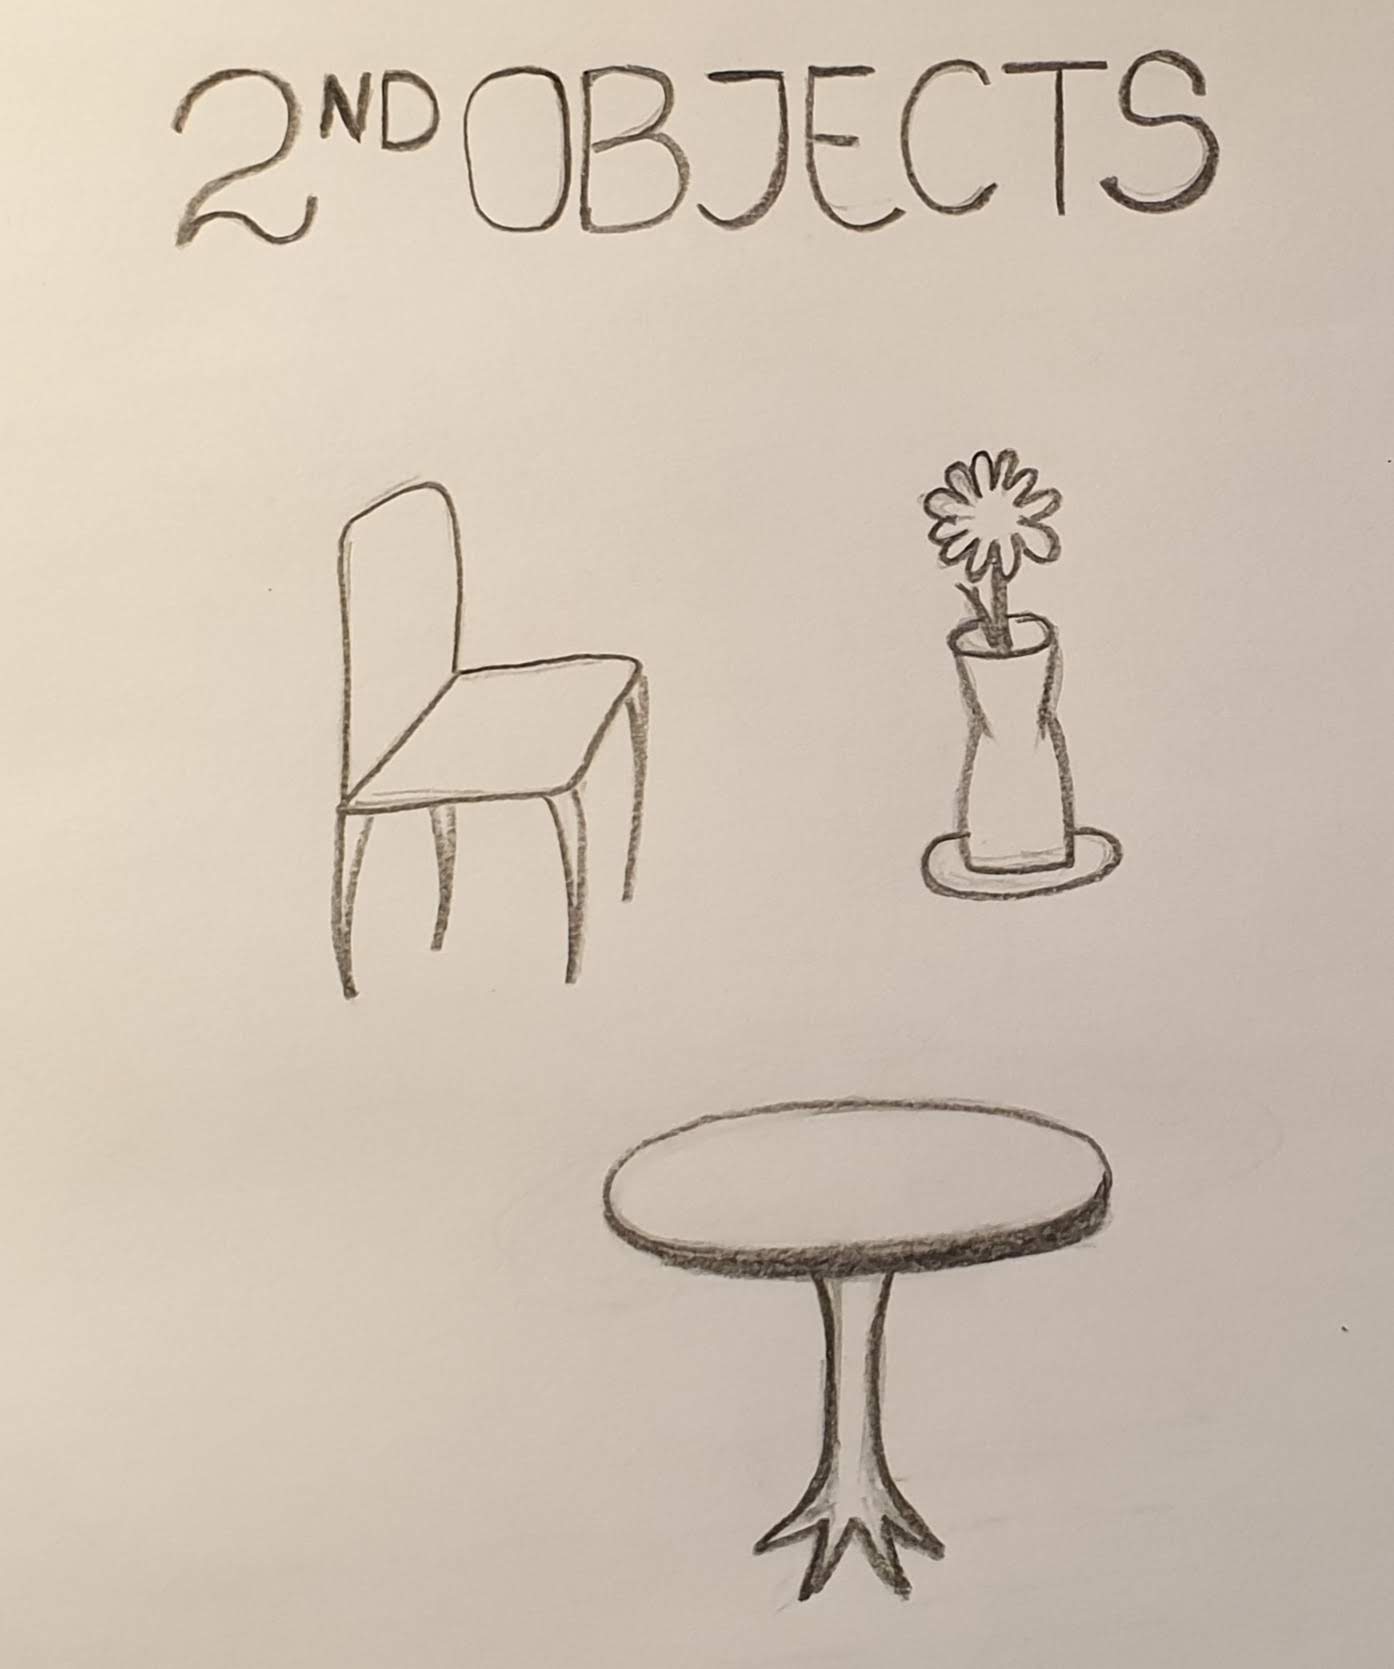 2ND OBJECTS